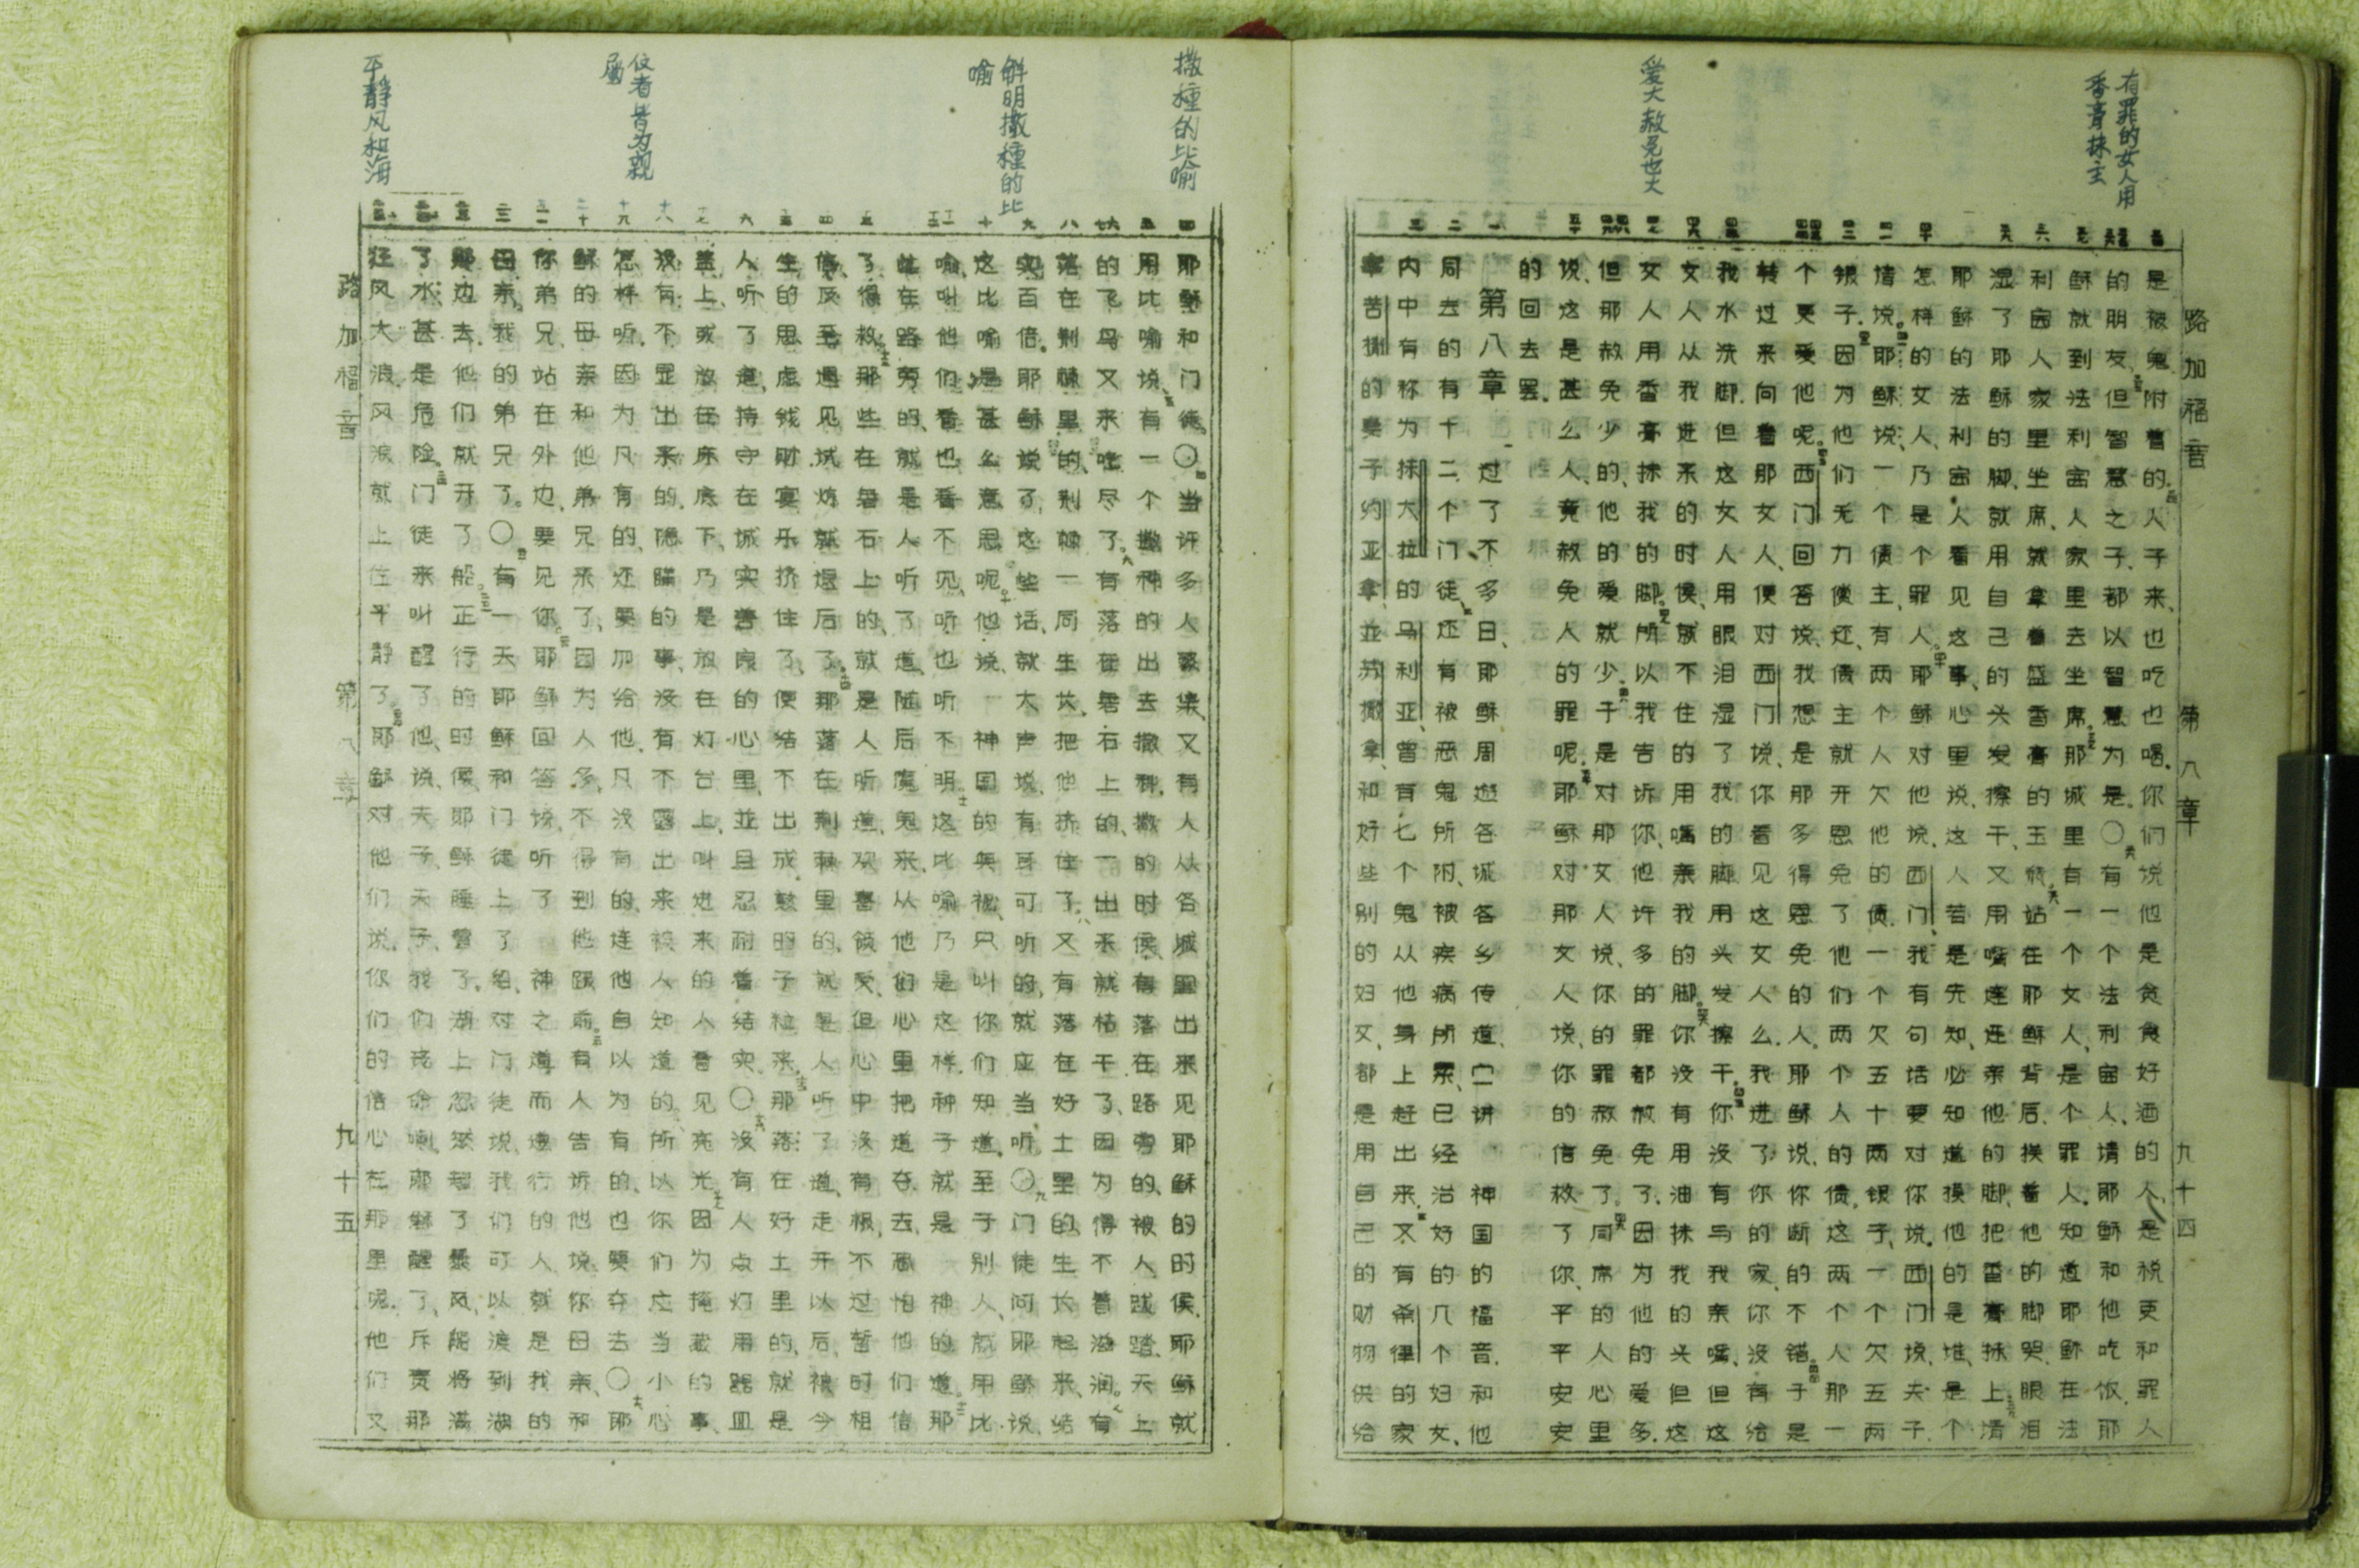 有罪的女人用
香膏抹主
爱大赦免也大
路加福音　第八章　九十四
是被鬼附着的人子来、也吃也喝、你们说他是贪食好酒的人、是税吏和罪人
的朋友、但智慧之子、都以智慧为是。〇有一个法利宫人、请耶稣和他吃饭、耶
稣就到法利宫人家里去坐席、那城里有一个女人、是个罪人、知道耶稣在法
利宫人家里坐席、就拿着盛香膏的玉瓶站在耶稣背后、挨着他的脚哭、眼泪
湿了耶稣的脚、就用自己的头发擦干、又用嘴连连亲他的脚、把香膏抹上、请
耶稣的法利宫人看见这事、心里说、这人若是先知、必知道摸他的是谁、是个
怎样的女人、乃是个罪人、耶稣对他说、西门、我有句话要对你说、西门说、夫子
请说、耶稣说、一个债主、有两个人欠他的债、一个欠五十两银子、一个欠五两
银子、因为他们无力偿还、债主就开恩免了他们两个人的债、这两个人那一
个更爱他呢、西门回答说、我想是那多得恩免的人、耶稣说、你断的不错、于是
转过来向着那女人、便对西门说、你看见这女人么、我进了你的家、你没有给
我水洗脚、但这女人用眼泪湿了我的脚、用头发擦干、你没有与我亲嘴、但这
女人从我进来的时候、就不住的用嘴亲我的脚、你没有用油抹我的头、但这
女人用香膏抹我的脚、所以我告诉你、他许多的罪都赦免了、因为他的爱多、
但那赦免少的、他的爱就少、于是对那女人说、你的罪赦免了、同席的人心里
说、这是甚么人、竟赦免人的罪呢、耶稣对那女人说、你的信救了你、平平安安
的回去罢。
第八章　过了不多日、耶稣周遊各城各乡传道、宣讲　神国的福音、和他
周去的有十二个门徒、还有被恶鬼所附、被疾病所累、已经治好的几个妇女、
内中有称为抹大拉的马利亚、曾有七个鬼从他身上赶出来、又有希律的家
宰苦撒的妻子约亚拿、並苏撒拿、和好些别的妇女、都是用自己的财物供给
撒種的比喻
解明撒種的比
喻
仪者皆为親
属
平静风和海
耶稣和门徒。〇当许多人聚集、又有人从各城里出来见耶稣的时候、耶稣就
用比喻说、有一个撒种的出去撒种、撒的时候、有落在路旁的、被人践踏、天上
的飞鸟又来吃尽了、有落在磐石上的、一出来就枯干了、因为得不着滋润、有
落在荆棘里的、荆棘一同生长、把他挤住了、又有落在好土里的、生长起来、结
实百倍。耶稣说了这些话、就大声说、有耳可听的、就应当听。〇门徒问耶稣说、
这比喻是甚么意思呢、他说、　神国的奥秘、只叫你们知道、至于别人、就用比
喻、叫他们看也看不见、听也听不明、这比喻乃是这样、种子就是　神的道、那
些在路旁的、就是人听了道、随后魔鬼来、从他们心里把道夺去、恐怕他们信
了得救、那些在磐石上的、就是人听道、欢喜领受、但心中没有根、不过暂时相
信、及至遇见试炼就退后了、那落在荆棘里的、就是人听了道、走开以后、被今
生的思虑钱财、宴乐挤住了、便结不出成熟的子粒来、那落在好土里的、就是
人听了道、持守在诚实善良的心里、並且忍耐着结实。〇没有人点灯用器皿
盖上、或放在床底下、乃是放在灯台上、叫进来的人看见亮光、因为掩藏的事、
没有不显出来的、隐瞒的事、没有不露出来被人知道的、所以你们应当小心
怎样听、因为凡有的、还要加给他、凡没有的、连他自以为有的、也要夺去。〇耶
稣的母亲和他弟兄来了、因为人多、不得到他跟前、有人告诉他说、你母亲、和
你弟兄、站在外边、要见你。耶稣回答说、听了　神之道而遵行的人、就是我的
母亲、我的弟兄了。〇有一天耶稣和门徒上了船、对门徒说、我们可以渡到湖
那边去、他们就开了船、正行的时候、耶稣睡着了、湖上忽然起了暴风、船将满
了水、甚是危险、门徒来叫醒了他、说、夫子、夫子、我们丧命啦、耶稣醒了、斥责那
狂风大浪、风浪就止住平静了、耶稣对他们说、你们的信心在那里呢、他们又
路加福音　第八章　九十五